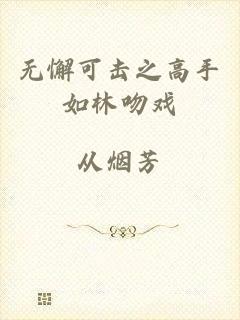 无懈可击之高手
如林吻戏
从烟芳